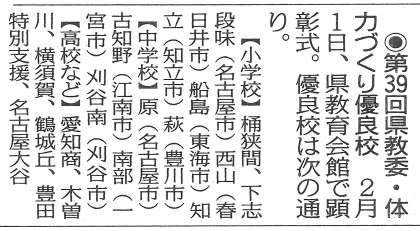 ◉第39回県教委・体
力づくり優良校　2月
1日、県教育会館で顕
彰式。優良校は次の通
り。
【小学校】桶狭間、下志
段味（名古屋市）西山（春
日井市）船島（東海市）知
立（知立市）萩（豊川市）
【中学校】原（名古屋市）
古知野（江南市）南部（一
宮市）刈谷南（刈谷市）
【高校など】愛知商、木曽
川、横須賀、鶴城丘、豊田
特別支援、名古屋大谷